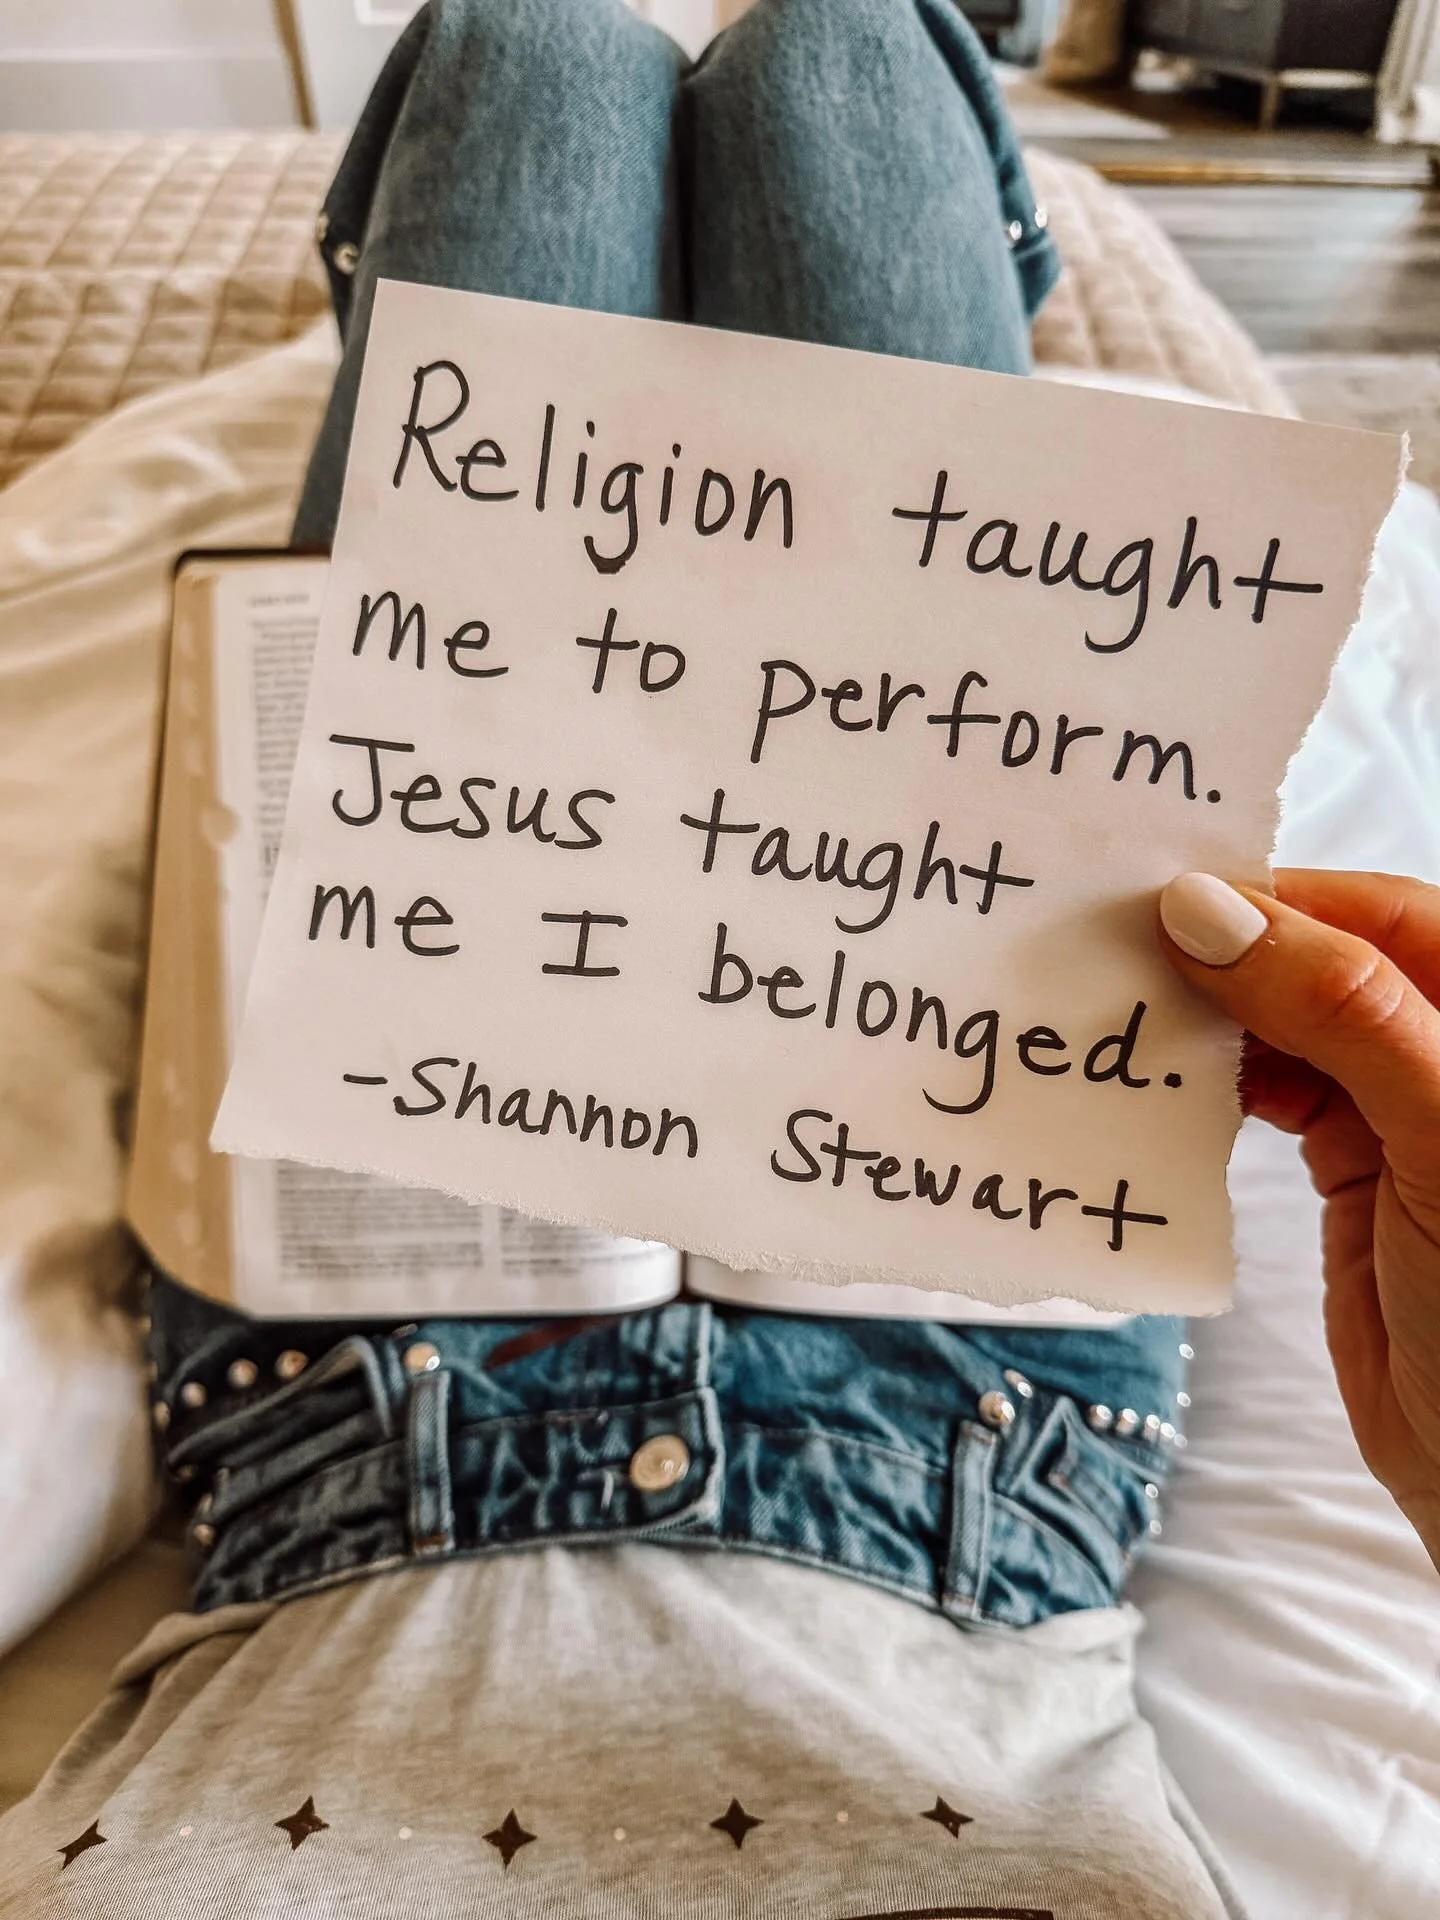 Religion taught
me to perform.
Jesus taught
me I belonged.
-Shannon Stewart